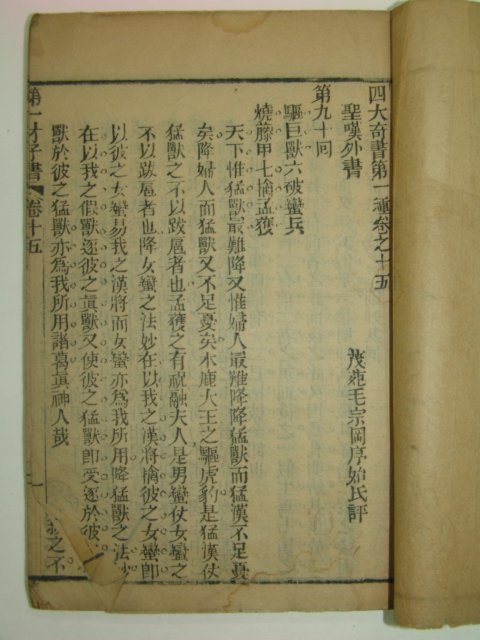 四大奇書第一種卷之十五
聖嘆外書
茂苑毛宗岡序始氏評
第九十回
驅巨獸六破蠻兵
燒藤甲七擒孟獲
天下惟猛獸最難降又惟婦人最難降降猛獸而猛漢不足憂
矣降婦人而猛獸又不足憂矣木鹿大王之驅虎豹是猛漢仗
猛獸之不以跋扈者也孟獲之有祝融夫人是男蠻仗女蠻之
不以跋扈者也降女蠻之法妙在以我之漢將擒彼之女蠻卽
以彼之女蠻易我之漢將而女蠻亦爲我所用降猛獸之法妙
在以我之假獸逐彼之眞獸又使彼之猛獸卽受逐於彼
獸於彼之猛獸亦爲我所用諸葛眞神人哉
之不
第一才子書 卷十五
一